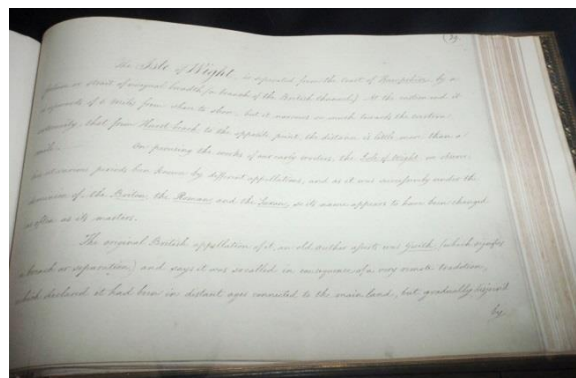 The Isle of Wight, is separated from the coast of Hampshire by a
or strait of unequal breadth (a branch of the British Channel) At the eastern end it
of 6 miles from shore to shore, but it narrows so much towards the western
extremity, that from Hurst beach, to the opposite point, the distance is little more than a
mile.
On perusing the works of our early writers, the Isle of Wight, we
has at various periods been known by different appellations, and as it was successively under the
dominion of the Briton, the Roman and the Saxon, so its name appears to have been changed
as often as its masters.
The original British appellation of it, an old author asserts was Guith (which signifies
a breach or separation) and says it was so called in consequence of a very remote tradition,
which declared it had been in distant ages connected to the main land, but gradually
by